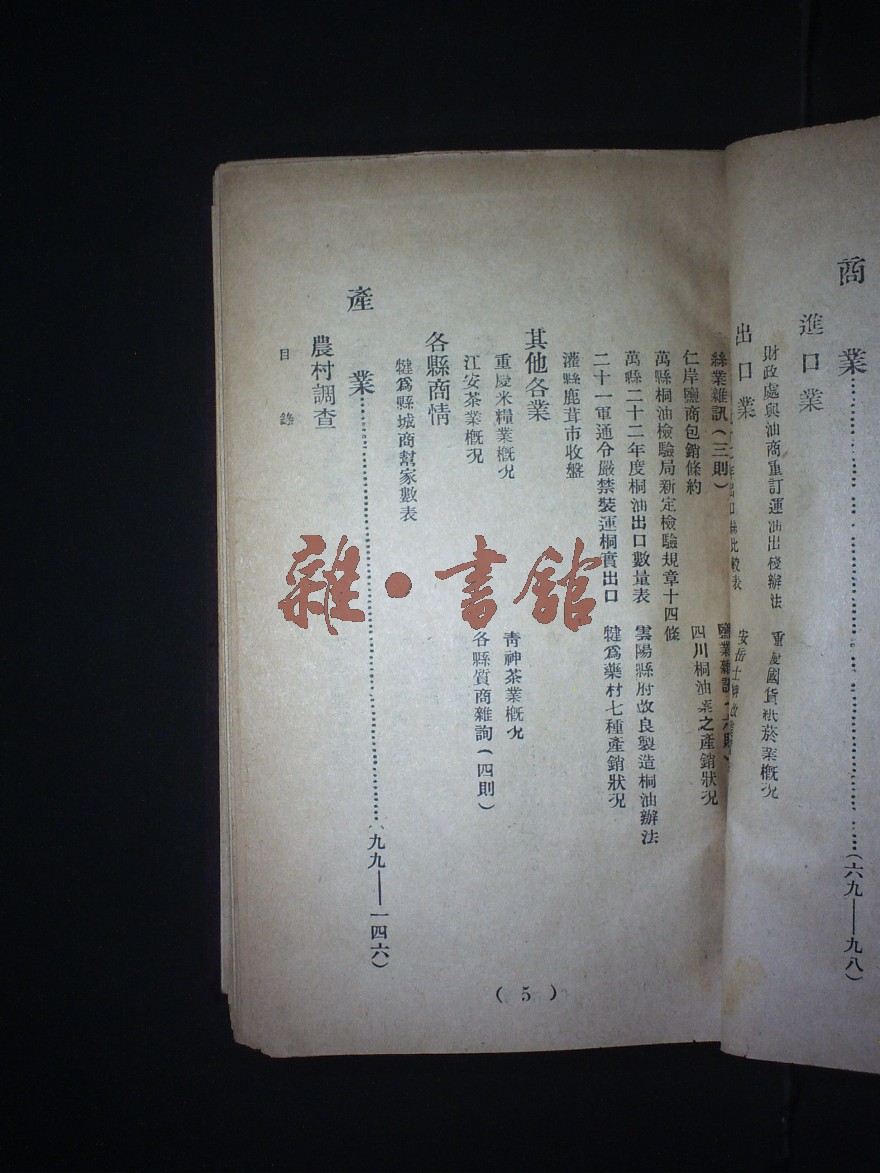 商業……(六九——九八)
進口業
財政處與油商重訂運油出棧辦法
重慶國貨紙菸業概況
出口業
出口 比較表
安岳
絲業雜訊(三則)
鹽業雜訊
仁岸鹽商包銷條約
四川桐油業之產銷狀況
萬縣桐油檢驗局新定檢驗規章十四條
萬縣二十二年度桐油出口數量表
雲陽縣府改良製造桐油辦法
二十一軍通令嚴禁裝運桐實出口
犍爲藥材七種產銷狀況
灌縣鹿茸市收盤
其他各業
重慶米糧業概況
青神茶業概況
江安茶業概況
各縣質商雜詢(四則)
各縣商情
犍爲縣城商幫家數表
產業……(九九——一四六)
農村調查
目錄
(5)
雜·書館